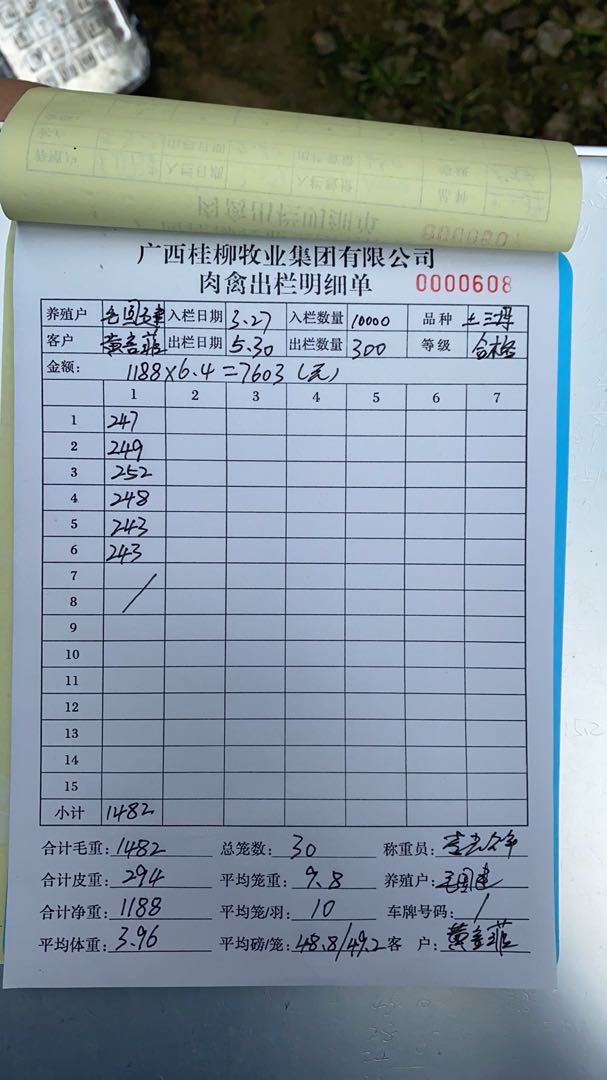 广西桂柳牧业集团有限公司
肉禽出栏明细单 0000608
养殖户 毛国建 入栏日期 3.27 入栏数量 10000 品种 土三号
客户 黄金菲 出栏日期 5.30 出栏数量 300 等级 合格
金额: 1188×6.4=7603(元)
1 2 3 4 5 6 7
1 247
2 249
3 252
4 248
5 243
6 243
7
8 /
9
10
11
12
13
14
15
小计 1482
合计毛重: 1482 总笼数: 30 称重员:
合计皮重: 294 平均笼重: 9.8 养殖户: 毛国建
合计净重: 1188 平均笼/羽: 10 车牌号码: /
平均体重: 3.96 平均磅/笼: 48.8/49.2 客 户: 黄金菲